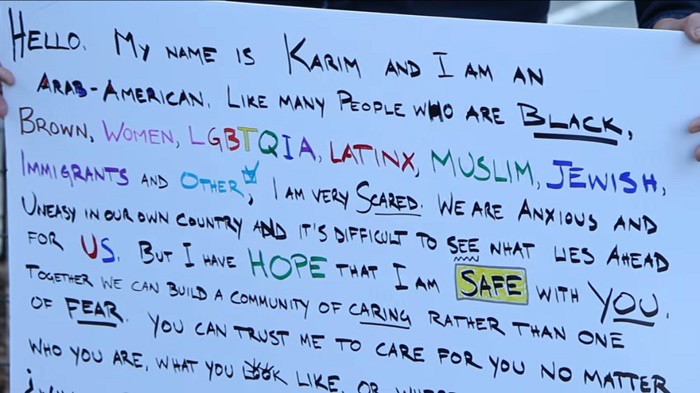 HELLO. MY NAME IS KARIM AND I AM AN
ARAB-AMERICAN. LIKE MANY PEOPLE WHO ARE BLACK,
BROWN, WOMEN, LGBTQIA, LATINX, MUSLIM, JEWISH,
IMMIGRANTS AND OTHER, I AM VERY SCARED. WE ARE ANXIOUS AND
UNEASY IN OUR OWN COUNTRY AND IT'S DIFFICULT TO SEE WHAT LIES AHEAD
FOR US. BUT I HAVE HOPE THAT I AM SAFE WITH YOU.
TOGETHER WE CAN BUILD A COMMUNITY OF CARING RATHER THAN ONE
OF FEAR. YOU CAN TRUST ME TO CARE FOR YOU NO MATTER
WHO YOU ARE, WHAT YOU LOOK LIKE, OR